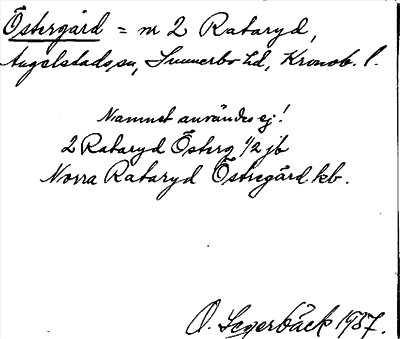 Östergård = m 2 Rataryd,
Angelstads sn, Sunnerbo hd, Kronob. l.
Namnet användes ej!
2 Rataryd Österg 1/2 jb
Norra Rataryd Östregård kb.
O. Segerbäck 1937.